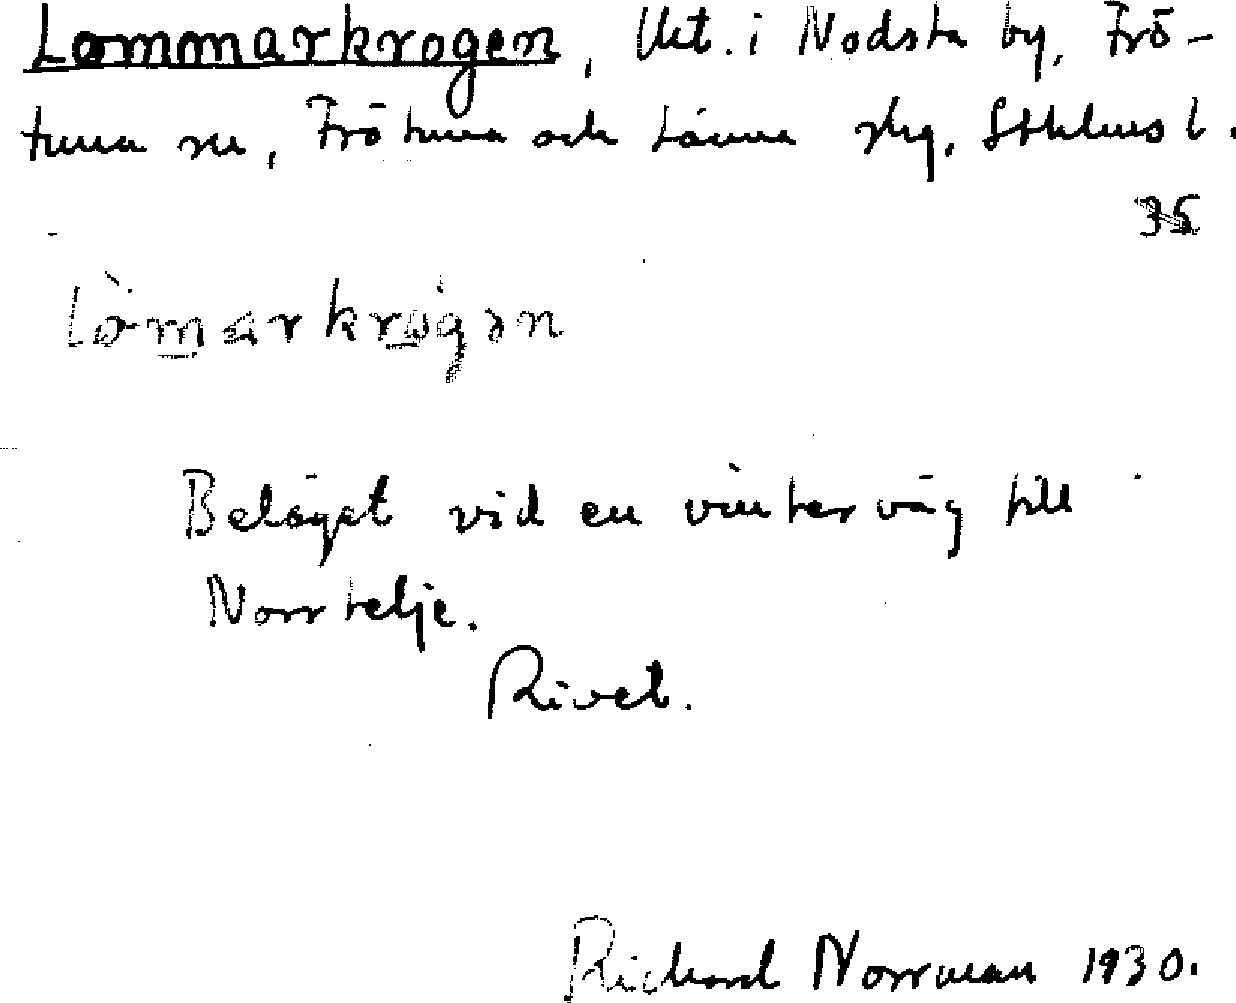 Lommarkrogen, Utt. i Nodsta by, Frö-
tuna sn, Frötuna och Länna skg, Sthlms l.
35
Lòmarkrogən
Beläget vid en vinterväg till
Norrtelje.
Rivet.
Richard Norrman 1930.